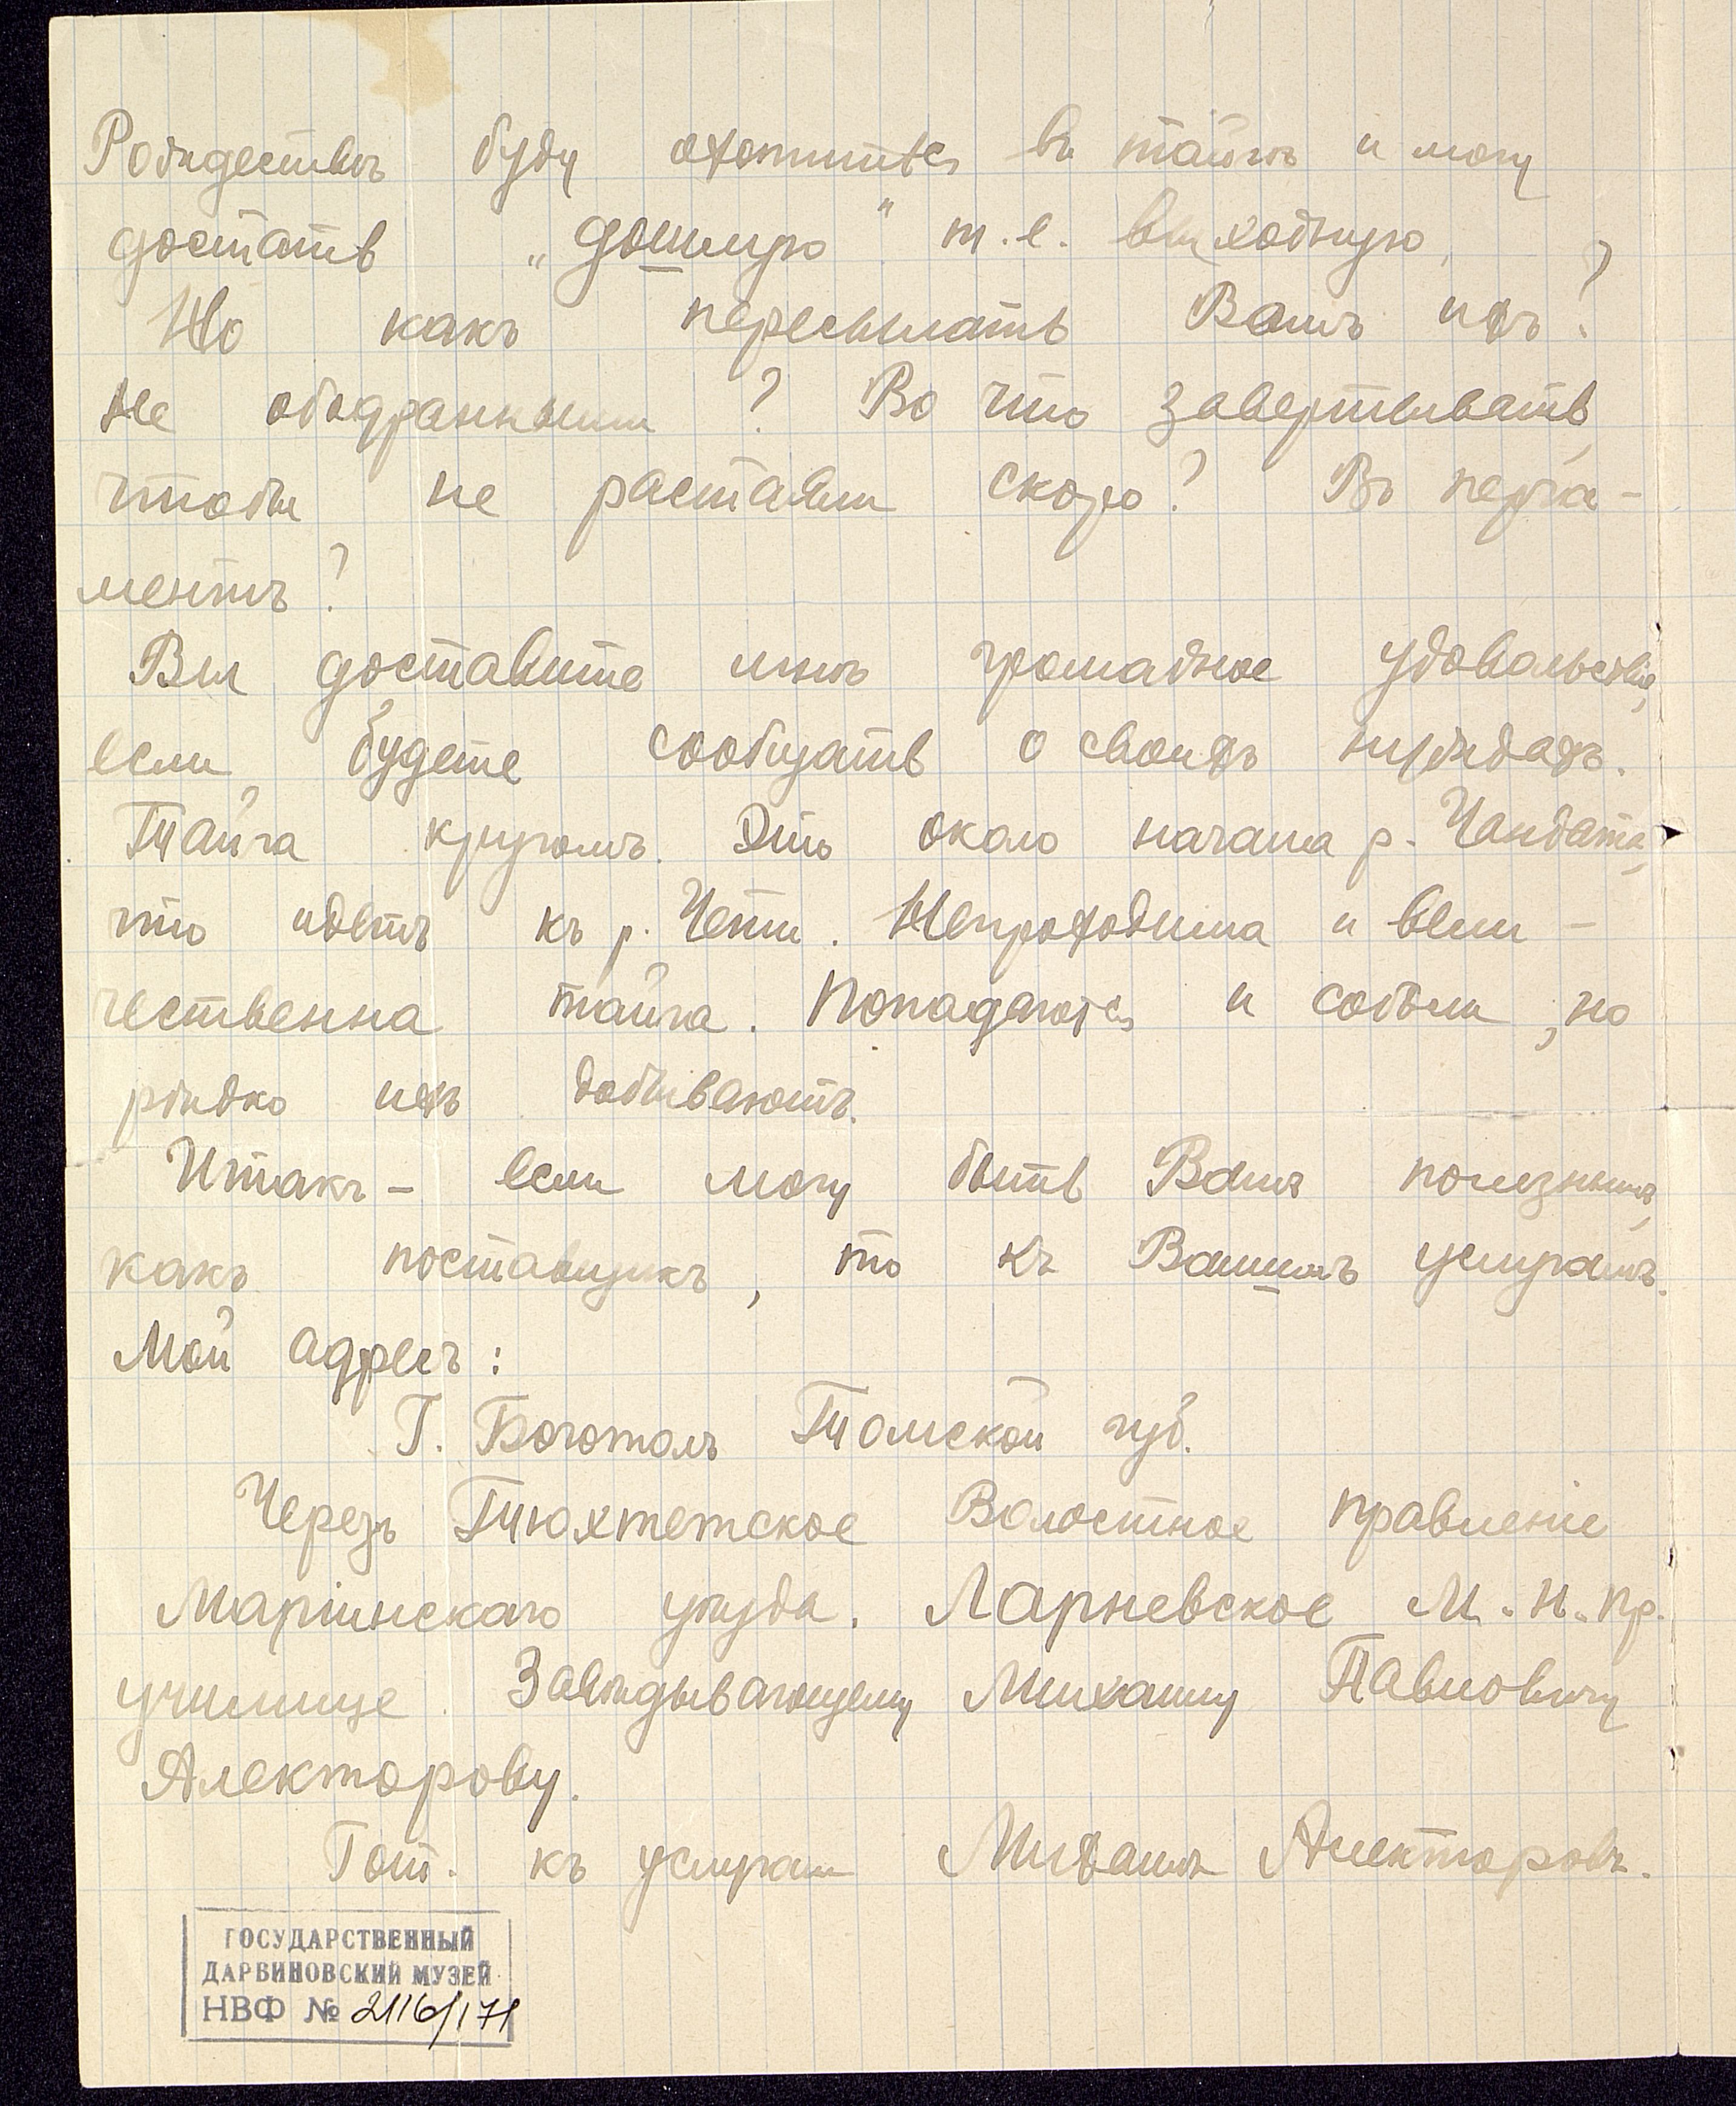 Рождествѣ буду охотиться въ тайгѣ и могу
достать „дошлую" т.е. выходную,
Но какъ пересылать Вамъ ихъ?
Не ободранными? Во что завертывать,
чтобы не растаяли скоро? Въ перга-
ментъ?
Вы доставите мнѣ громадное удовольствіе,
если будете сообщать о своихъ нуждахъ.
Тайга кругомъ. Это около начала р. Чандата,
что идетъ къ р. Чети. Непроходима и вели-
чественна тайга. Попадаются и соболи, но
рѣдко ихъ добываютъ.
Итакъ – если могу быть Вамъ полезнымъ,
какъ поставщикъ, то къ Вашимъ услугамъ.
Мой адресъ:
Г. Боготолъ Томской губ.
Черезъ Тюхтетское Волостное правленіе
Маріинскаго уѣзда. Ларневское М. Н. Пр.
училище. Завѣдывающему Михаилу Павловичу
Алекторову.
Гот. къ услугам Михаилъ Алекторовъ.
ГОСУДАРСТВЕННЫЙ
ДАРВИНОВСКИЙ МУЗЕЙ
НВФ № 2116/171